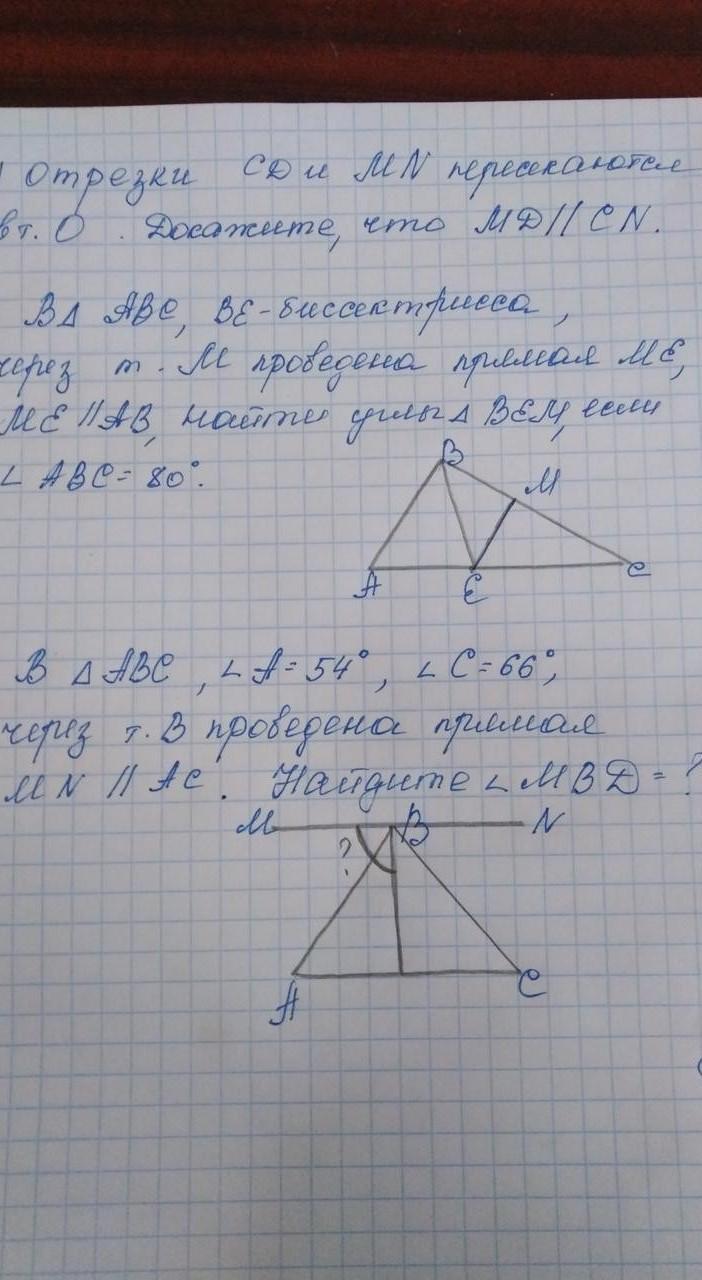 Отрезки CD и MN пересекаются
в т. O . Докажите, что MD // CN.
В Δ ABC, BE - биссектрисса,
через т. M проведена прямая ME,
ME // AB, найти углы Δ BEM, если
∠ ABC = 80°.
B
M
A
E
C
В Δ ABC, ∠ A = 54°, ∠ C = 66°,
через т. B проведена прямая
MN // AC. Найдите ∠ MBD = ?
M B N
?
A
C